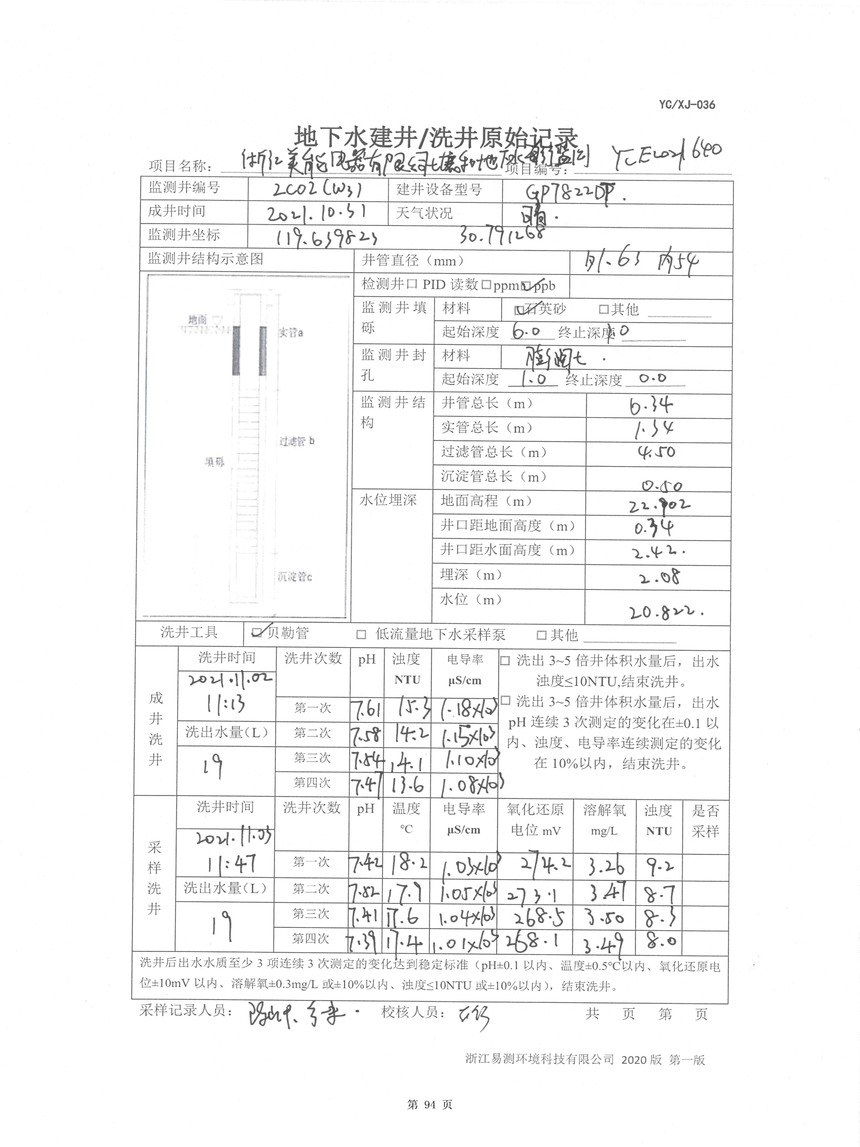 YC/XJ-036
地下水建井/洗井原始记录
项目名称： 浙江美能电器有限公司土壤和地下水自行监测 项目编号： YCE2021640
监测井编号 2C02(W3) 建井设备型号 GP7822DT.
成井时间 2021.10.31 天气状况 晴.
监测井坐标 119.639823 30.791268
监测井结构示意图 井管直径（mm） 外.63 内54
检测井口 PID 读数 □ppm ☑ppb
监测井填砾 材料 ☑石英砂 □其他
起始深度 6.0 终止深度 1.0
监测井封孔 材料 膨润土.
起始深度 1.0 终止深度 0.0
监测井结构 井管总长（m） 6.34
实管总长（m） 1.34
过滤管总长（m） 4.50
沉淀管总长（m） 0.50
地面
实管a
过滤管 b
填砾
沉淀管c
水位埋深 地面高程（m） 22.902
井口距地面高度（m） 0.34
井口距水面高度（m） 2.42.
埋深（m） 2.08
水位（m） 20.822.
洗井工具 ☑贝勒管 □ 低流量地下水采样泵 □其他
成井洗井
洗井时间 洗井次数 pH 浊度 NTU 电导率 μS/cm
2021.11.02
11:13 第一次 7.61 15.3 1.18x10³
洗出水量(L) 第二次 7.58 14.2 1.15x10³
19 第三次 7.54 14.1 1.10x10³
第四次 7.47 13.6 1.08x10³
□ 洗出 3~5 倍井体积水量后，出水
浊度≤10NTU,结束洗井。
□ 洗出 3~5 倍井体积水量后，出水
pH 连续 3 次测定的变化在±0.1 以
内、浊度、电导率连续测定的变化
在 10%以内，结束洗井。
采样洗井
洗井时间 洗井次数 pH 温度 ℃ 电导率 μS/cm 氧化还原电位 mV 溶解氧 mg/L 浊度 NTU 是否采样
2021.11.03
11:47 第一次 7.42 18.2 1.03x10³ 274.2 3.26 9.2
洗出水量(L) 第二次 7.52 17.9 1.05x10³ 273.1 3.47 8.7
19 第三次 7.41 17.6 1.04x10³ 268.5 3.50 8.3
第四次 7.39 17.4 1.01x10³ 268.1 3.49 8.0
洗井后出水水质至少 3 项连续 3 次测定的变化达到稳定标准（pH±0.1 以内、温度±0.5℃以内、氧化还原电
位±10mV 以内、溶解氧±0.3mg/L 或±10%以内、浊度≤10NTU 或±10%以内），结束洗井。
采样记录人员： 校核人员： 共 页 第 页
浙江易测环境科技有限公司 2020 版 第一版
第 94 页